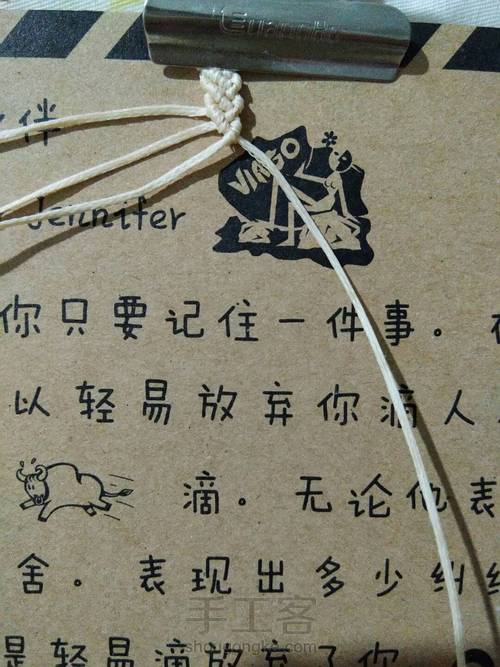 伴
VIRGO
Jennifer
你只要记住一件事。
以轻易放弃你滴人
滴。无论他表
舍。表现出多少纠
是轻易滴放弃了你
手工客
shougongke.com